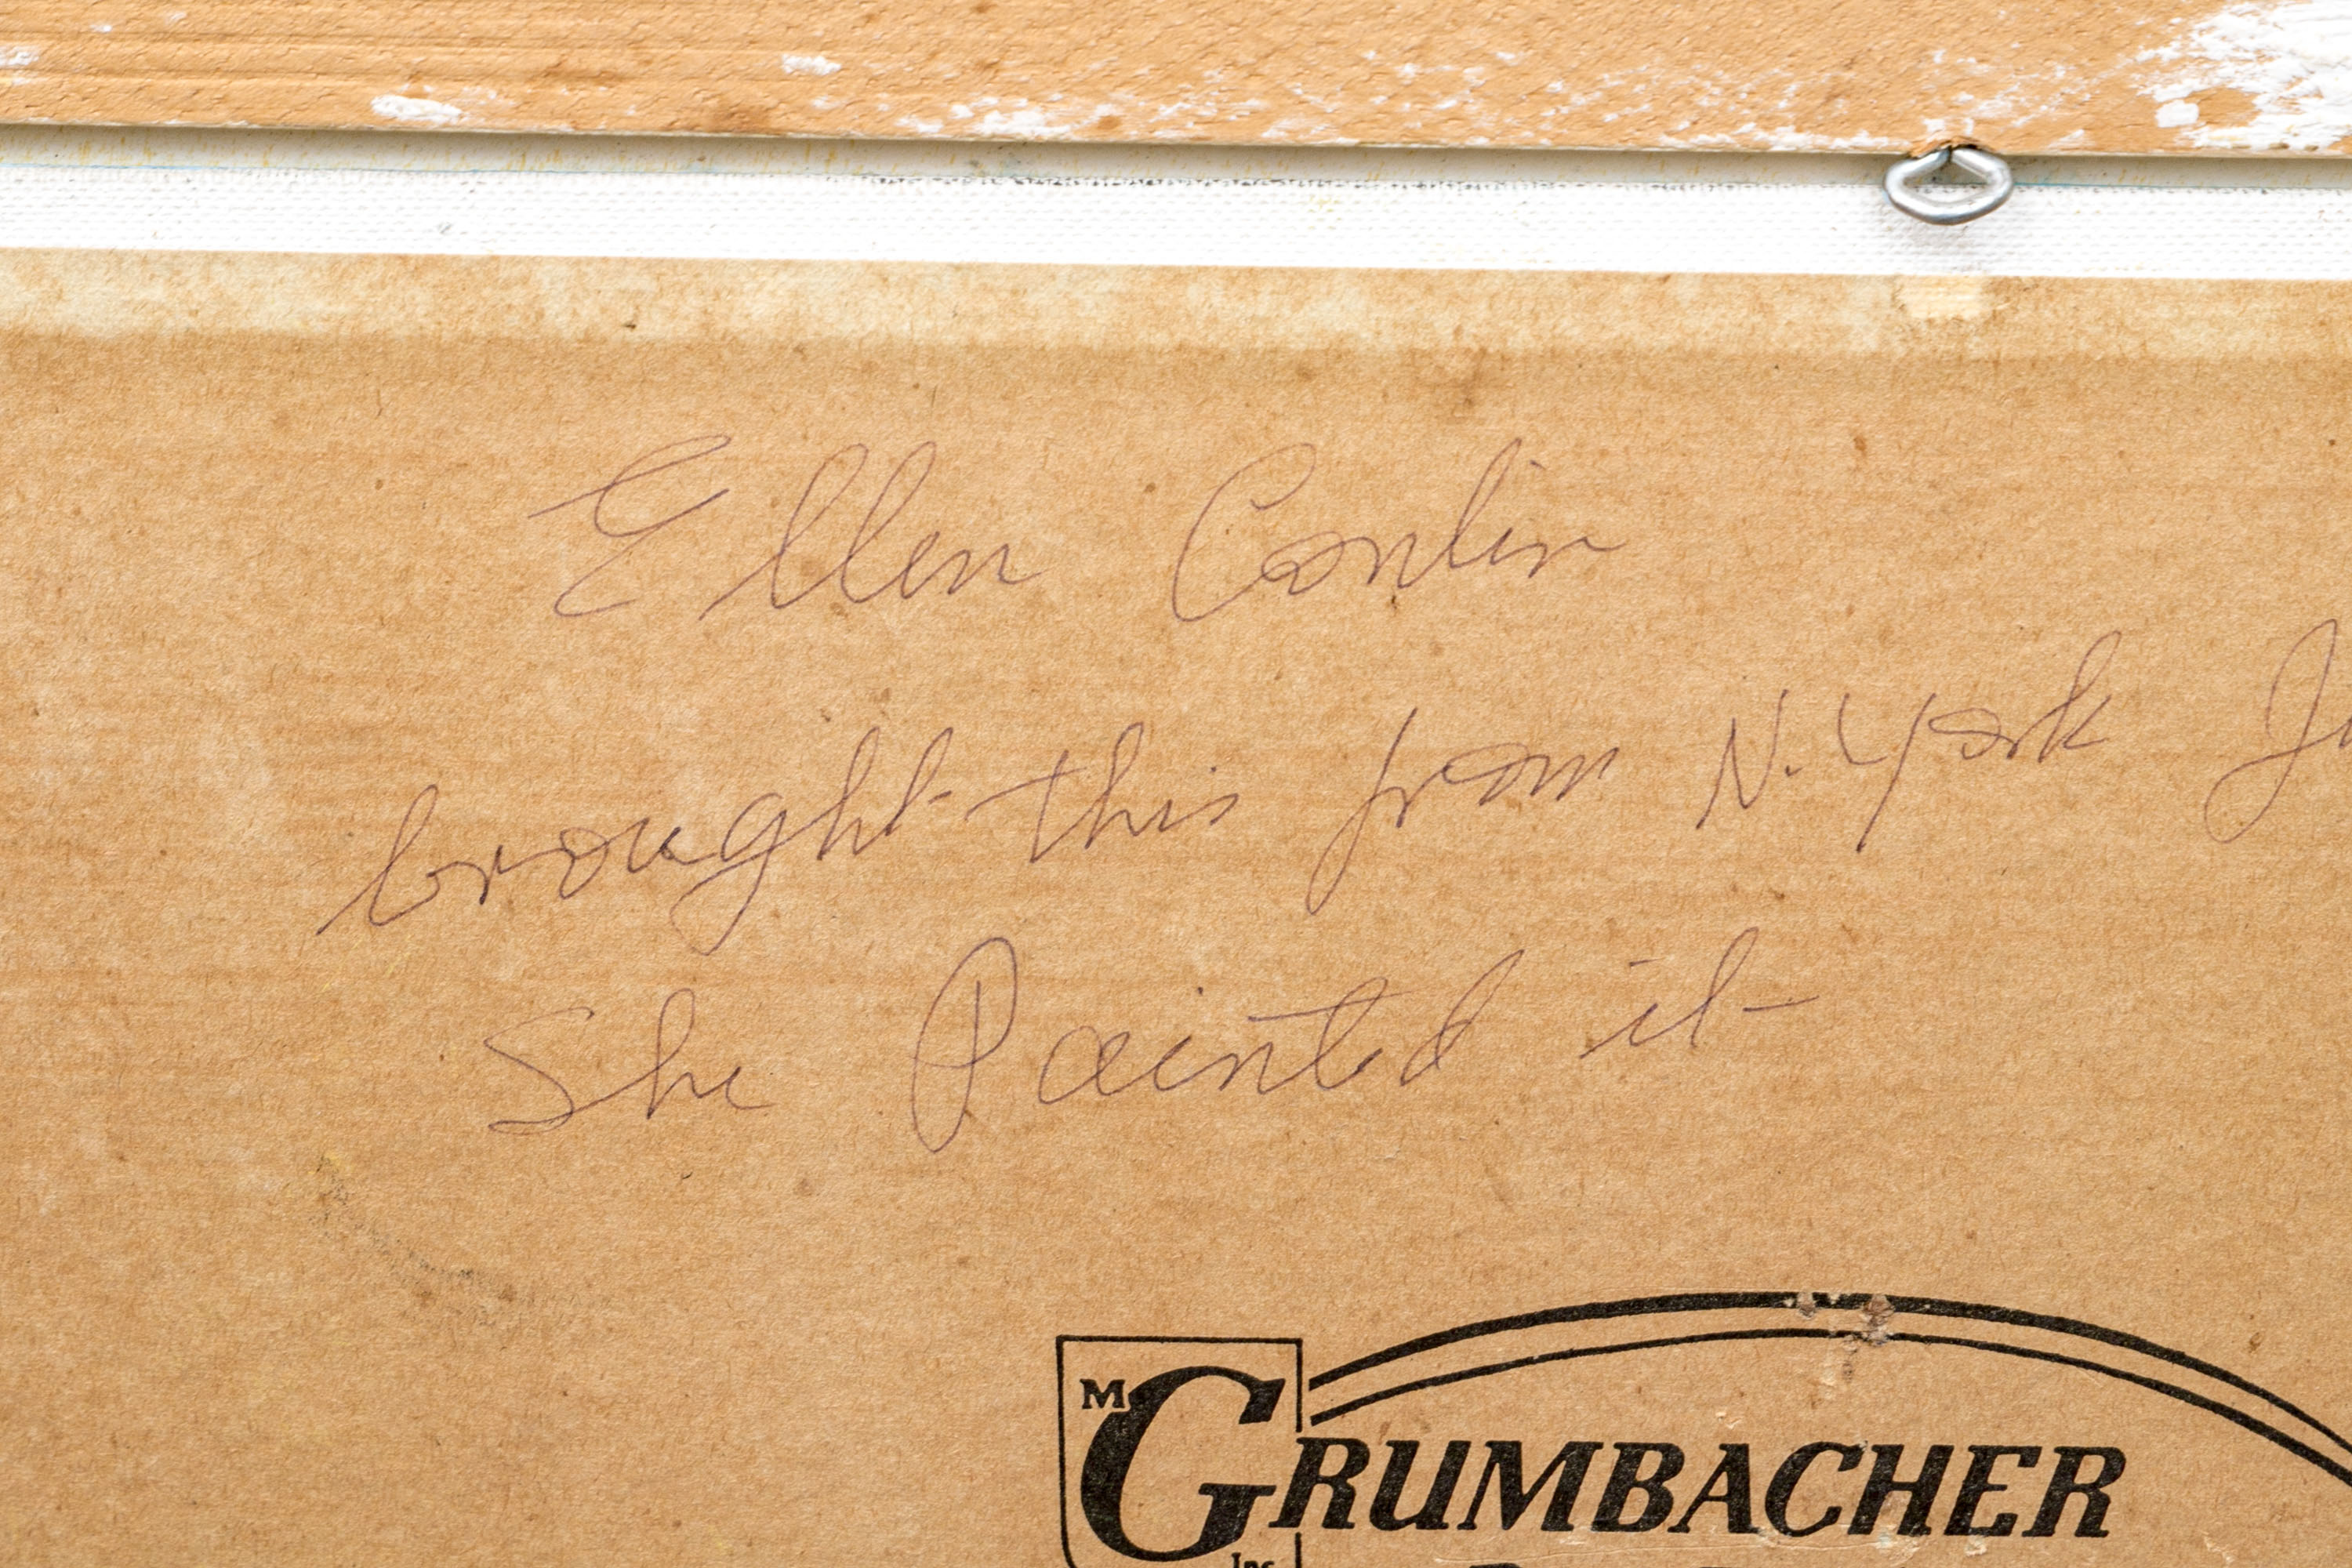 Ellen Conlin
brought this from N. York
She Painted it
M GRUMBACHER
Inc